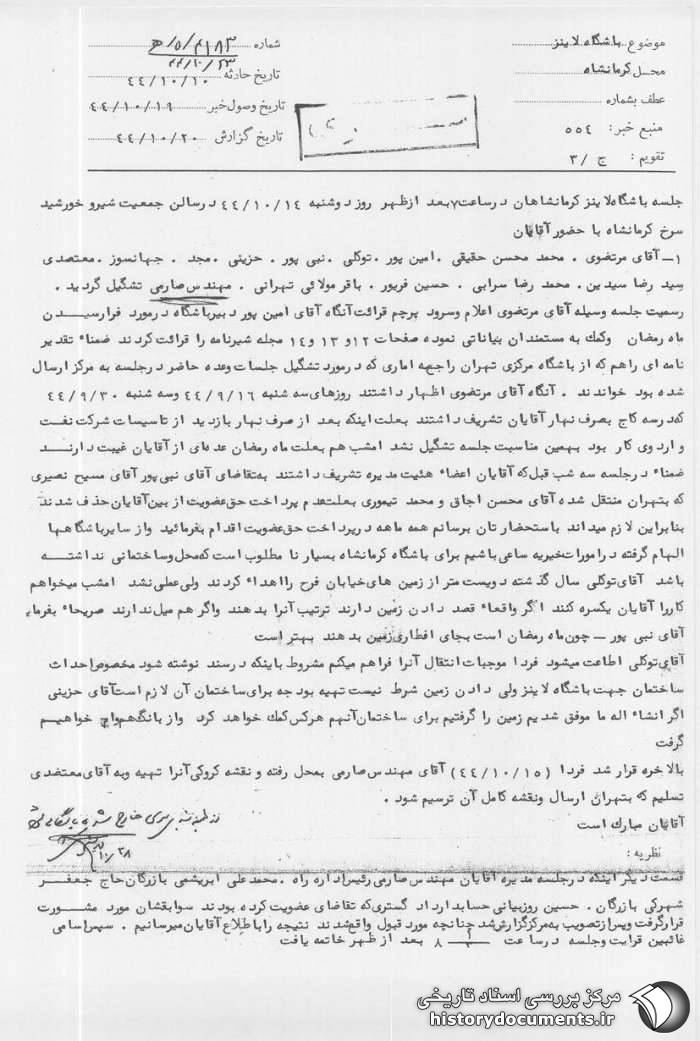 موضوع باشگاه لاینز
محل کرمانشاه
عطف بشماره
منبع خبر: ۵۵۴
تقویم: ج /۳
شماره ۴۱۸۳/۵/ه
۴۴/۱۰/۲۳
تاریخ حادثه ۴۴/۱۰/۱۰
تاریخ وصول خبر ۴۴/۱۰/۱۹
تاریخ گزارش ۴۴/۱۰/۲۰
جلسه باشگاه لاینز کرمانشاهان درساعت۷بعد ازظهر روز دوشنبه ۴۴/۱۰/۱۴ درسالن جمعیت شیرو خورشید
سرخ کرمانشاه با حضور آقایان
۱ـ آقای مرتضوی . محمد محسن حقیقی . امین پور . توکلی . نبی پور . حزینی . مجد . جهانسوز . معتضدی
سید رضا سیدین . محمد رضا سرابی . حسین فریور . باقر مولائی تهرانی . مهندس صارمی تشگیل گردید .
رسمیت جلسه وسیله آقای مرتضوی اعلام وسرود پرچم قرائت آنگاه آقای امین پور دبیرباشگاه درمورد فرارسیدن
ماه رمضان وکمك به مستمندان بیاناتی نموده صفحات ۱۲و ۱۳ و۱۴ مجله شیرنامه را قرائت کردند ضمناء تقدیر
نامه ای راهم که از باشگاه مرکزی تهران راجعبه اماری که درمورد تشگیل جلسات وعده حاضر درجلسه به مرکز ارسال
شده بود خواندند . آنگاه آقای مرتضوی اظهار داشتند روزهای سه شنبه ۴۴/۹/۱۶ وسه شنبه ۴۴/۹/۳۰
که درسه کاج بصرف نهار آقایان تشریف داشتند بعلت اینکه بعد از صرف نهار بازدید از تاسیسات شرکت نفت
و اردوی کار بود بهمین مناسبت جلسه تشگیل نشد امشب هم بعلت ماه رمضان عده ای از آقایان غیبت دارند
ضمناء درجلسه سه شب قبل که آقایان اعضاء هئیت مدیره تشریف داشتند به تقاضای آقای نبی پور آقای مسیح نصیری
که بتهران منتقل شده آقای محسن اجاق و محمد تیموری بعلت عدم پرداخت حق عضویت از بین آقایان حذف شدند
بنابراین لازم میداند باستحضارتان برسانم همه ماهه درپرداخت حق عضویت اقدام بفرمائید واز سایرباشگاهها
الهام گرفته درامورات خیریه ساعی باشیم برای باشگاه کرمانشاه بسیار نا مطلوب است که محل وساختمانی نداشته
باشد آقای توکلی سال گذشته دویست متر از زمین های خیابان فرح را اهداء کردند ولی عملی نشد امشب میخواهم
کاررا آقایان یکسره کنند اگر واقعاء قصد دادن زمین دارند ترتیب آنرا بدهند واگر هم میل ندارند صریحاء بفرمایند
آقای نبی پور ـ چون ماه رمضان است بجای افطاری زمین بدهند بهتر است
آقای توکلی اطاعت میشود فردا موجبات انتقال آنرا فراهم میکنم مشروط باینکه درسند نوشته شود مخصوص احداث
ساختمان جهت باشگاه لاینز ولی دادن زمین شرط نیست تهیه بودجه برای ساختمان آن لازم است آقای حزینی
اگر انشاء اله ما موفق شدیم زمین را گرفتیم برای ساختمان آنهم هرکس کمك خواهد کرد واز بانگ هم وام خواهیم
گرفت
بالاخره قرار شد فردا (۴۴/۱۰/۱۵) آقای مهندس صارمی بمحل رفته و نقشه کروکی آنرا تهیه وبه آقای معتضدی
تسلیم که بتهران ارسال ونقشه کامل آن ترسیم شود .
آقایان مبارك است
نظریه :
۱۰/۲۸
قسمت دیگر اینکه درجلسه مدیره آقایان مهندس صارمی رئیس اداره راه . محمد علی ابریشمی بازرگان حاج جعفر
شهرکی بازرگان . حسین روزبیانی حسابدار دادگستری که تقاضای عضویت کرده بودند سوابقشان مورد مشورت
قرارگرفت وپس از تصویب به مرکزگزارش شد چنانچه مورد قبول واقع شدند نتیجه را باطلاع آقایان میرسانیم . سپس اسامی
غائبین قرایت وجلسه درساعت ۸ بعد از ظهر خاتمه یافت
مرکز بررسی اسناد تاریخی
historydocuments.ir